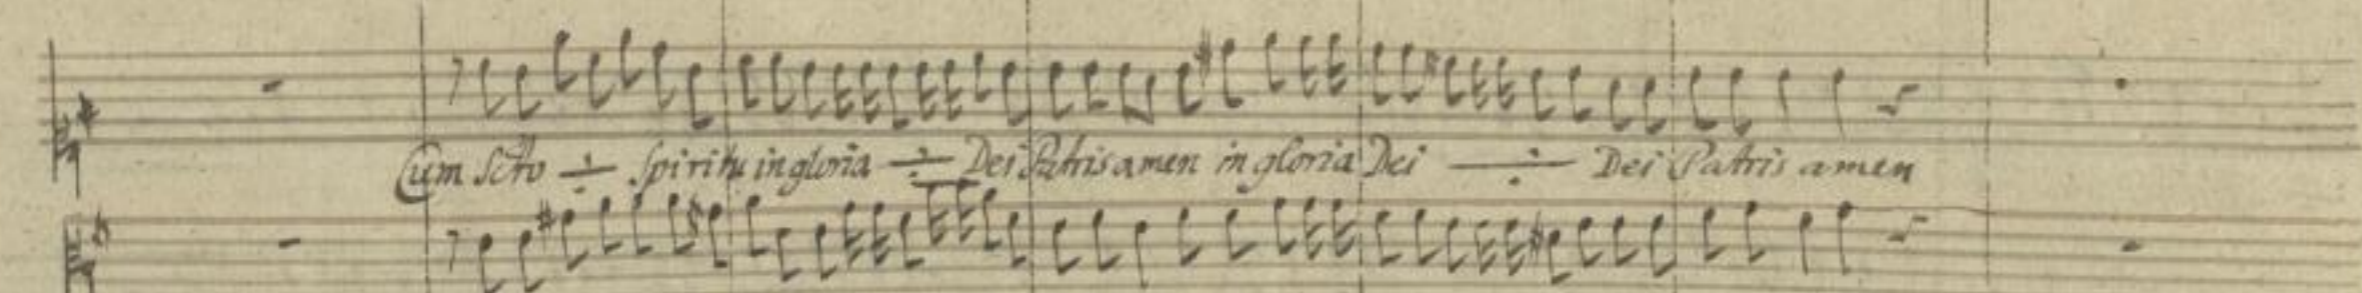 Cum Scto ÷ Spiritu in gloria ÷ Dei Patris amen in gloria Dei ÷ Dei Patris amen